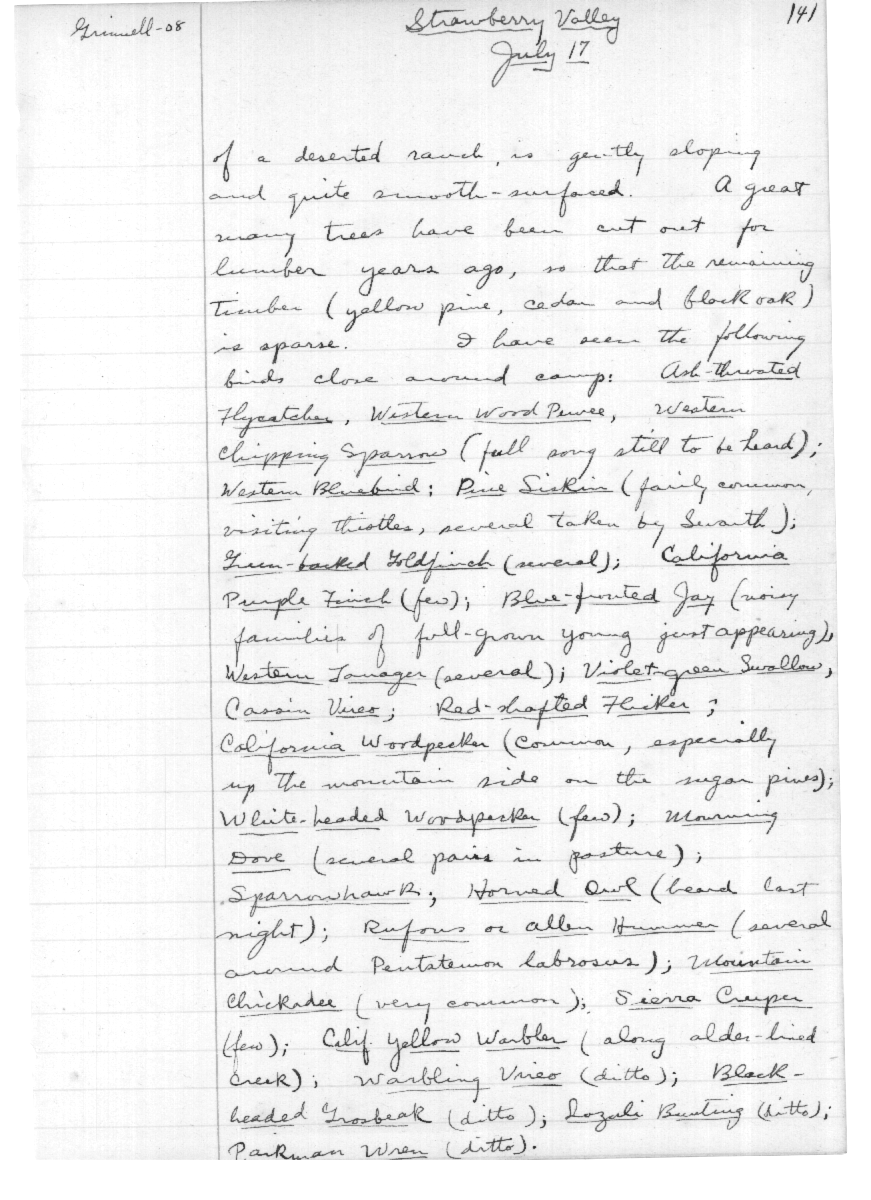 Grinnell-08
Strawberry Valley
141
July 17
of a deserted ranch, is gently sloping
and quite smooth-surfaced. A great
many trees have been cut out for
lumber years ago, so that the remaining
timber (yellow pine, cedar and black oak)
is sparse. I have seen the following
birds close around camp: Ash-throated
Flycatcher, Western Wood Pewee, Western
Chipping Sparrow (full song still to be heard);
Western Bluebird; Pine Siskin (fairly common,
visiting thistles, several taken by Swarth);
Green-backed Goldfinch (several); California
Purple Finch (few); Blue-fronted Jay (noisy
families of full-grown young just appearing),
Western Tanager (several); Violet-green Swallow,
Cassin Vireo; Red-shafted Flicker;
California Woodpecker (common, especially
up the mountain side on the sugar pines);
White-headed Woodpecker (few); Mourning
Dove (several pairs in pasture);
Sparrowhawk; Horned Owl (heard last
night); Rufous or Allen Hummer (several
around Pentstemon labrosus); Mountain
Chickadee (very common); Sierra Creeper
(few); Calif. Yellow Warbler (along alder-lined
creek); Warbling Vireo (ditto); Black-
headed Grosbeak (ditto); Lazuli Bunting (ditto);
Parkman Wren (ditto).